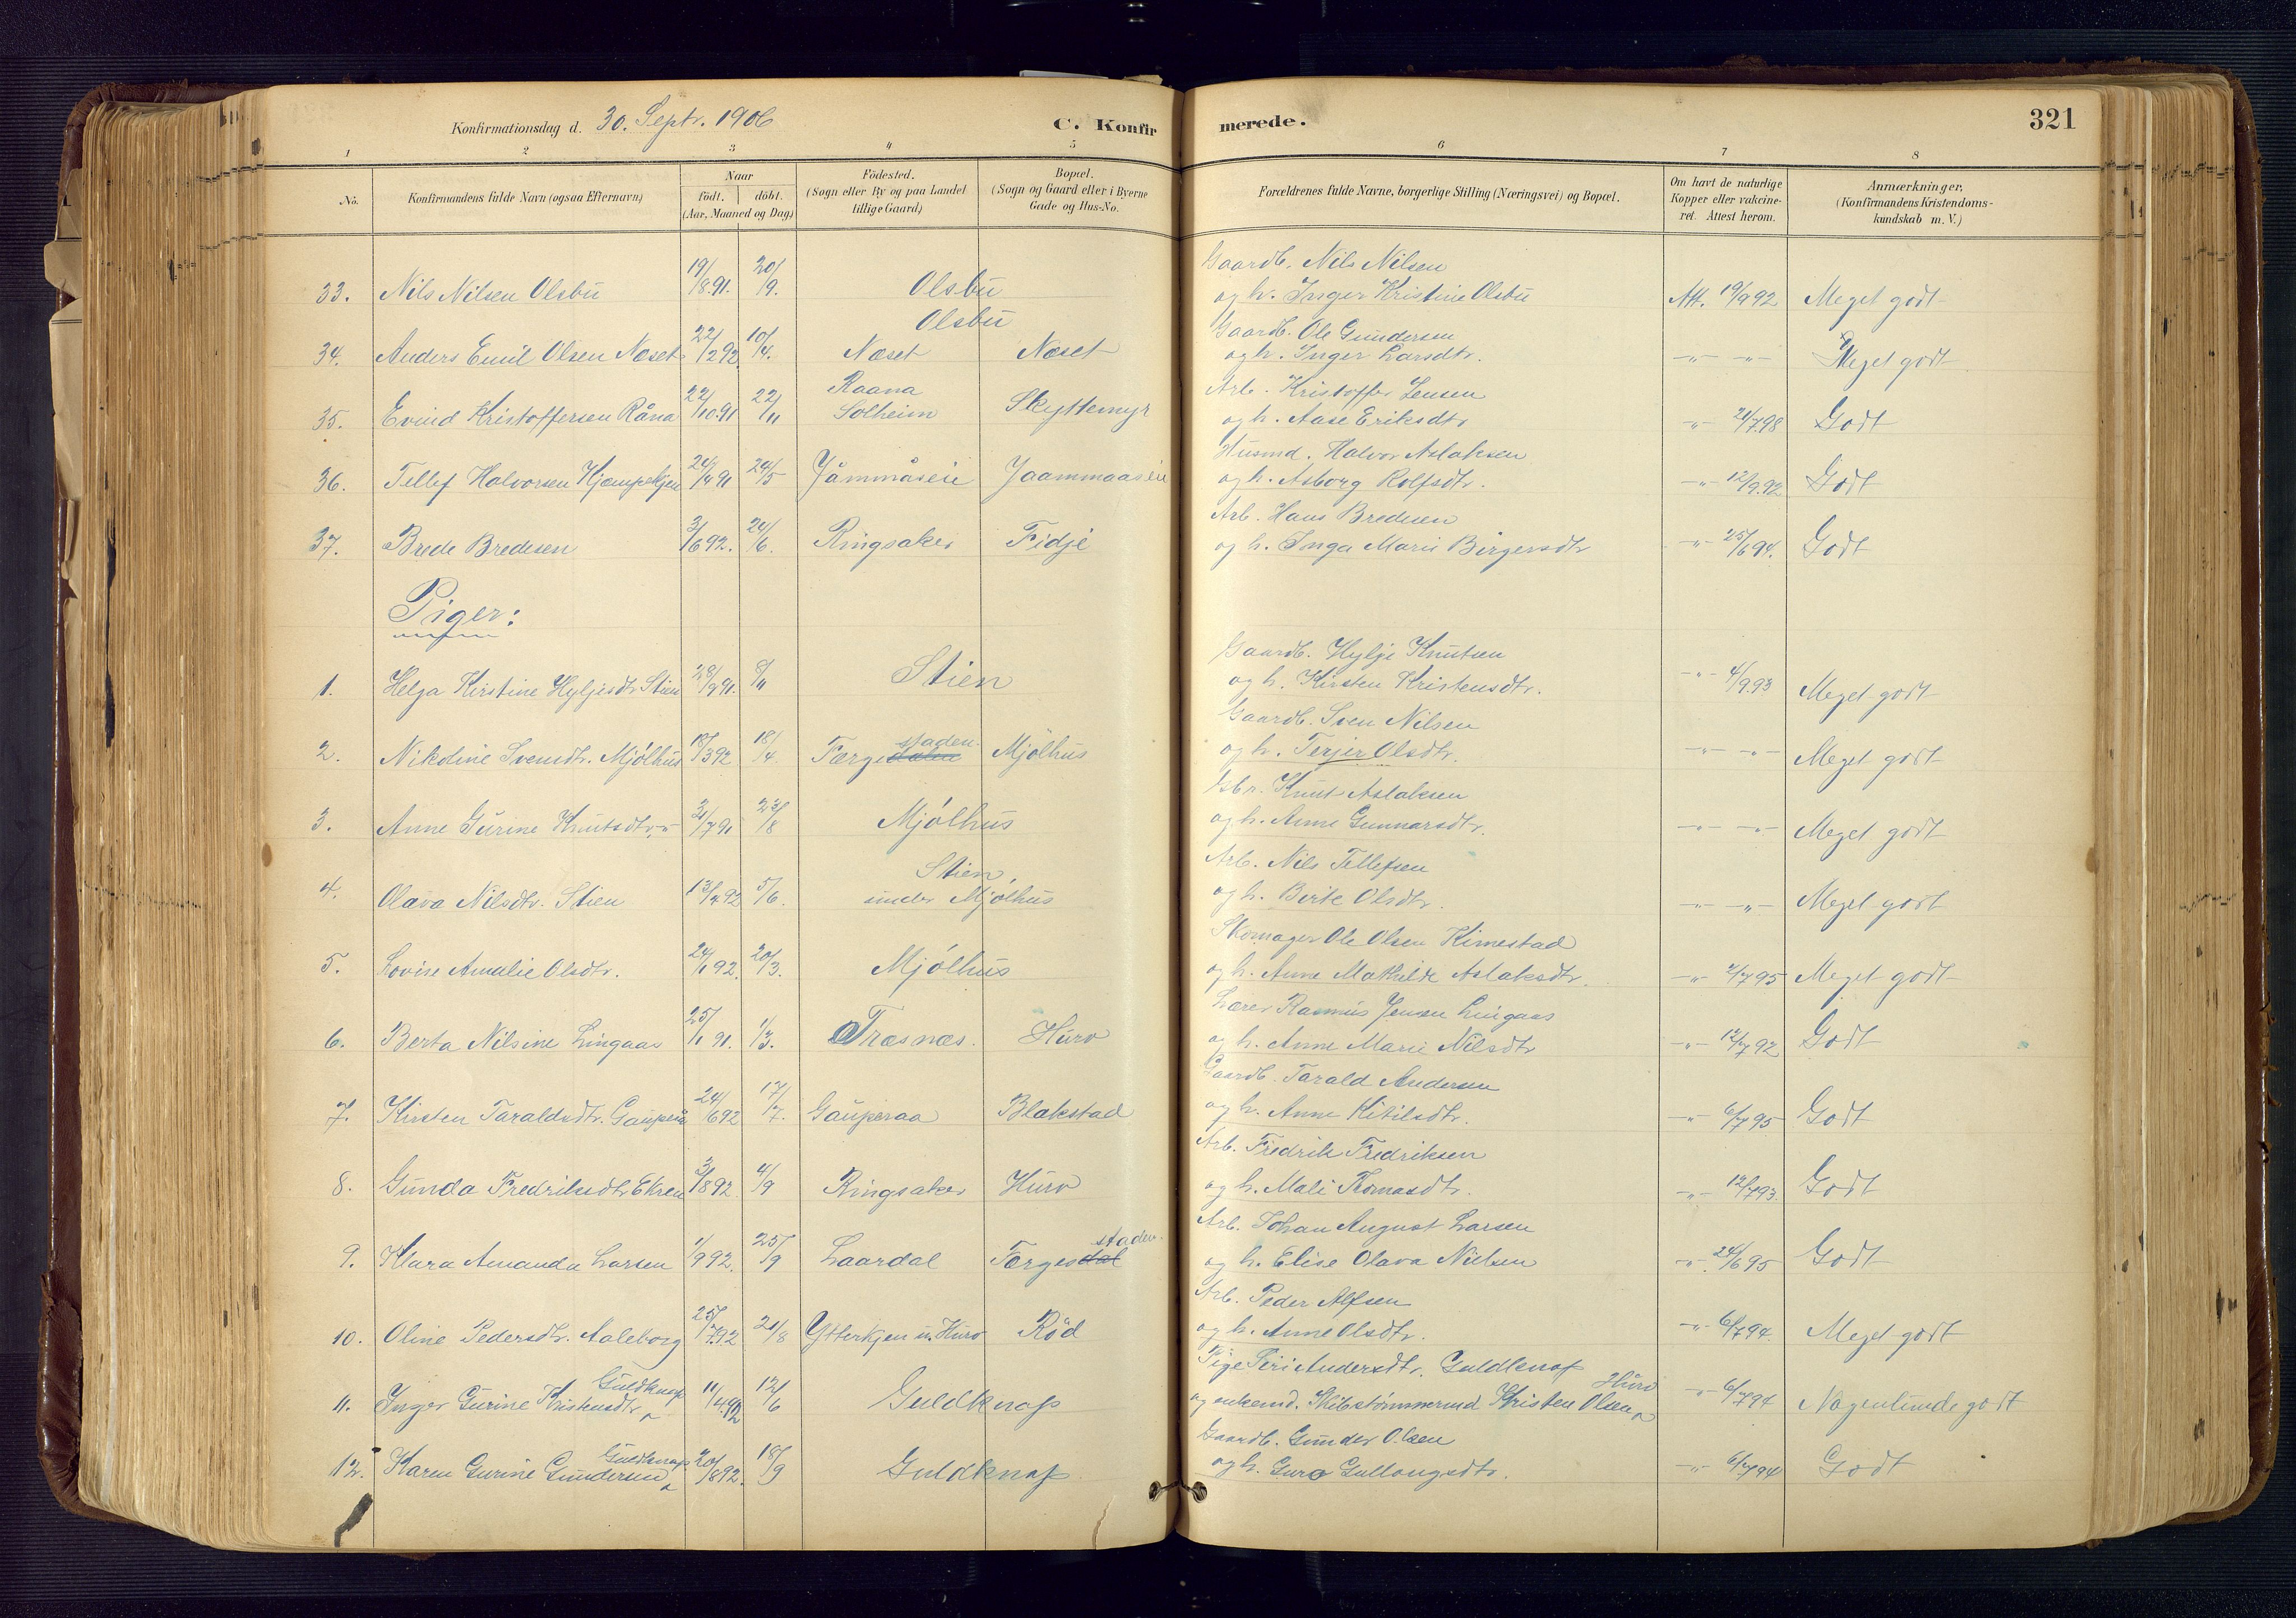 Konfirmationsdag d. 30. Septr. 1906
C. Konfirmerede.
321
1 2 3 4 5 6 7 8
No.
Konfirmandens fulde Navn (ogsaa Efternavn)
Naar
födt. döbt.
(Aar, Maaned og Dag)
Födested.
(Sogn eller By og paa Landet
tillige Gaard)
Bopæl.
(Sogn og Gaard eller i Byerne
Gade og Hus-No.
Forældrenes fulde Navne, borgerlige Stilling (Næringsvei) og Bopæl.
Om havt de naturlige
Kopper eller vakcine-
ret. Attest herom.
Anmærkninger,
(Konfirmandens Kristendoms-
kundskab m. V.)
Gaardb. Nils Nilsen
33. Nils Nilsen Olsbu 19/8 91. 20/9. Olsbu og h. Inger Kristine Olsbu Att. 19/9 92 Meget godt
Olsbu Gaardb. Ole Gundersen
34. Anders Emil Olsen Næset 22/2 92 10/4. Næset Næset og h. Inger Larsdtr. -"- -"- Meget godt
Raana Arb. Kristoffer Jensen
35. Evind Kristoffersen Råna 22/10 91 22/11 Solheim Skyttemyr og h. Aase Eriksdtr -"- 21/7 98 Godt
Husmd. Halvor Aslaksen
36. Tellef Halvorsen Kjempekjen 24/4 91 24/5 Jåmmåseie Jaammaaseie og h. Asborg Rolfsdtr. -"- 12/9.92 Godt
Arb. Hans Bredesen
37. Brede Bredesen 3/6 92. 24/6. Ringsaker Fidje og h. Inga Marie Birgersdtr -"- 25/6 94. Godt
Piger:
Gaardb. Hylje Knutsen
1. Helga Kirstine Hyljesdtr Stien 28/9 91. 8/11 Stien og h. Kirsten Kristensdtr. -"- 4/9.93 Meget godt
Gaardb. Sven Nilsen
2. Nikoline Svensdtr. Mjölhus 18/3 92 18/4. Færgestaden Mjölhus og h. Terjer Olsdtr. -"- -"- Meget godt
Gbr. Knut Aslaksen
3. Anne Gurine Knutsdtr. -"- 31/7 91 23/8 Mjölhus og h. Anne Gunnarsdtr. -"- -"- Meget godt
Stien, Arb. Nils Tellefsen
4. Olava Nilsdtr. Stien 5/6. under Mjölhus og h. Berte Olsdtr. -"- -"- Meget godt
Skomager Ole Olsen Kimestad
5. Lovise Amalie Olsdtr. 24/1 92. 20/3. Mjölhus og h. Anne Mathilde Aslaksdtr. -"- 2/7 95 Meget godt
Lærer Rasmus Jensen Lingaas
6. Berta Nilsine Lingaas 25/1 91. 1/3. Træsnæs. Hurv og h. Anne Marie Nilsdtr -"- 12/7 92 Godt
Gaardb. Tarald Andersen
7. Kirsten Taraldsdtr. Gauperaa 24/6 92 17/7. Gauperaa Blakstad og h. Anne Kitilsdtr. -"- 6/7 95 Godt
Arb. Fredrik Fredriksen
8. Gunda Fredriksdtr Ekren 3/8 92. 4/9 Ringsaker Hurv og h. Mali Tomasdtr. -"- 12/7 93. Godt
Arb. Johan August Larsen
9. Klara Amanda Larsen 1/9 92. 25/9 Laardal Færgestaden og h. Elise Olava Nielsen -"- 24/6 95 Godt
Arb. Peder Alfsen
10. Oline Pedersdtr. Aaleborg 25/7 92 21/8 Ytterkjen u. Hurv Röd og h. Anne Olsdtr. -"- 6/7 94. Meget godt
Guldknap Pige Siri Andersdtr. Guldknap
11. Inger Gurine Kristensdtr 11/4 92 12/6 Guldknap og enkemd. Skibstömmermd Kristen Olsen Hurv -"- 6/7 94 Nogenlunde godt
Guldknap Gaardb. Gunder Olsen
12. Karen Gurine Gundersen 20/8 92. 18/9 Guldknap og h. Guro Gullongsdtr. -"- 6/7 94 Godt